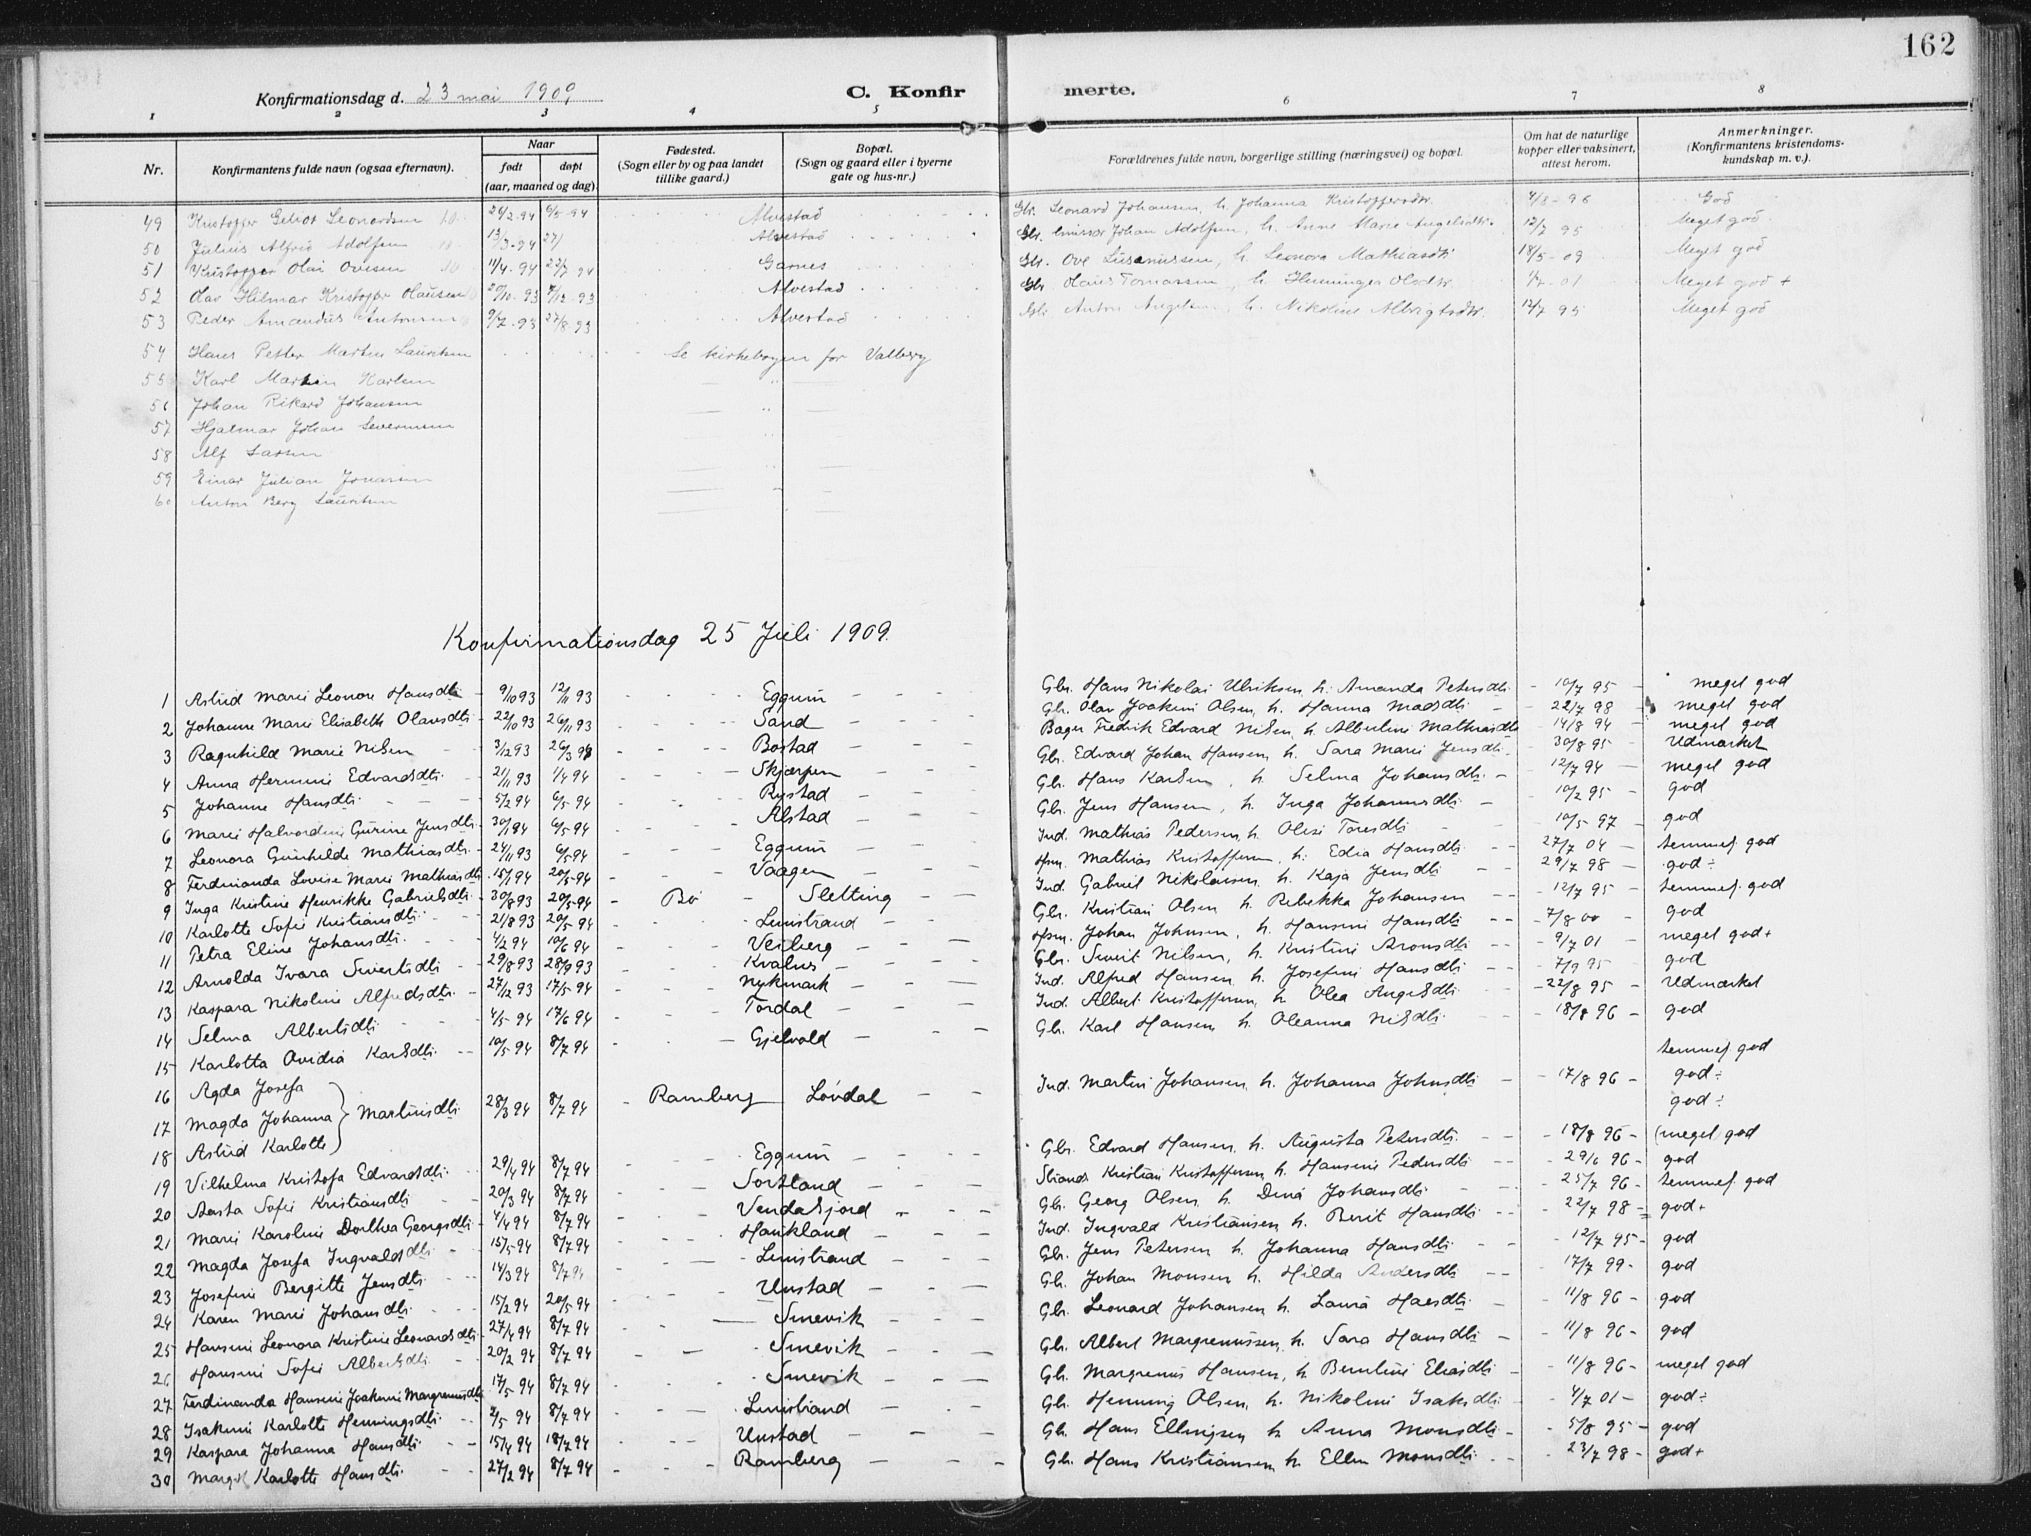 162
Konfirmationsdag d. 23 mai 1909 C. Konfirmerte.
1 2 3 4 5 6 7 8
Nr. Konfirmantens fulde navn (ogsaa efternavn). Naar født døpt (aar, maaned og dag). Fødested. (Sogn eller by og paa landet tillike gaard.) Bopæl. (Sogn og gaard eller i byerne gate og hus-nr.) Forældrenes fulde navn, borgerlige stilling (næringsvei) og bopæl. Om hat de naturlige kopper eller vaksinert, attest herom. Anmerkninger. (Konfirmantens kristendomskundskap m. v.).
49 Kristoffer Leonardsen 26/2-94 6/5-94 Alvestad Gbr. Leonard Johansen, h. Johanna Kristoffersdtr. God
50 Julius Alfred Adolfsen 13/3-94 27/ Alvestad Gbr. Johan Adolfsen, h. Anne Marie Angelsdtr. 12/7 95 Meget god
51 Kristoffer Olai Ovesen 11/4-94 23/7 94 Garnes Gbr. Ove h. Leonora Mathiasdtr 18/5-09 Meget god
52 Olav Hilmar Kristoffer Olausen 20/10-93 7/12-93 Alvestad Gbr Olaus Tomassen, h. Henninga Meget god +
53 Peder Amandus Antonsen 9/7-93 27/8-93 Alvestad Anton Angelsen, h. Nikoline Albrigtsdtr. 12/7 95 Meget god
54 Hans Petter Martin Lauritsen Se kirkebogen for Valberg
55 Karl Martin Karlsen — " —
56 Johan Rikard Johansen — " —
57 Hjalmar Johan Severinsen — " —
58 Alf Larsen — " —
59 Einar Julian Jonassen — " —
60 Anton Berg Lauritsen — —
Konfirmationsdag 25 Juli 1909.
1 Astrid Marie Leonore Hansdtr 9/10 93 12/11 93 Eggum Gbr. Hans Nikolai Ulriksen, h. Amanda Petersdtr 10/7 95 meget god
2 Johanne Marie Elisabeth Olausdtr 22/10 93 26/11 93 Sand Gbr. Olav Joakim Olsen, h. Hanna Madsdtr 22/7 98 meget god
3 Ragnhild Marie Nilsen 3/12 93 26/3 94 Bostad Bager Fredrik Edvard Nilsen, h. Albertine Mathiasdtr 14/8 94 meget god
4 Anna Hermine Edvardsdtr 21/11 93 1/4 94 Skjærpen Gbr. Edvard Johan Hansen, h. Sara Marie Jensdtr 30/8 95 Udmærket
5 Johanne Hansdtr 5/2 94 6/5 94 Rystad Gbr. Hans Karlsen, h. Selma Johansdtr 12/7 94 meget god
6 Marie Halvordine Gurine Jensdtr 30/1 94 6/5 94 Alstad Gbr. Jens Hansen, h. Inga Johannesdtr 10/2 95 god
7 Leonora Gunhilde Mathiasdtr 24/11 93 6/5 94 Eggum Ind. Mathias Pedersen, h. Olise Toresdtr 10/5 97 god
8 Ferdinanda Lovise Marie Mathiasdtr 15/1 94 20/5 94 Vaagen Hsm. Mathias Kristoffersen, h. Edia Hansdtr 27/7 04 temmel god
9 Inga Kristine Henrikke Gabrielsdtr 30/8 93 20/5-94 Bø Sletting Ind. Gabriel Nikolaisen, h. Kaja Jensdtr 29/7 98 god÷
10 Karlotte Sofie Kristiansdtr 21/8 93 20/5 94 Limstrand Gbr. Kristian Olsen, h. Rebekka Johansen 12/7 95 temmel god
11 Petra Eline Johansdtr 4/2 94 10/6 94 Veiberg Hsm. Johan Johnsen, h. Hansine Hansdtr 7/8 00 god
12 Arnolda Ivara Sivertsdtr 29/8 93 28/9 93 Kvalnes Gbr. Sivert Nilsen, h. Kristine Aronsdtr 9/7 01 meget god+
13 Kaspara Nikoline Alfredsdtr 27/12 93 17/5-94 Nykmark Ind. Alfred Hansen, h. Josefine Hansdtr 7/9 95 god
14 Selma Albertsdtr 4/5-94 17/6 94 Tordal Ind. Albert Kristoffersen, h. Olea Angelsdtr 22/8 95 Udmærket
15 Karlotta Ovidia Karlsdtr 10/5-94 8/7 94 Gjelvold Gbr. Karl Hansen, h. Oleanna Nilsdtr 18/8 96 god
16 Agda Josefa temmel god
17 Magda Johanna } Martinsdtr 28/3 94 8/7 94 Ramberg Løvdal Ind. Martin Johansen, h. Johanna Johnsdtr 17/8 96 god÷
18 Astrid Karlotte god÷
19 Vilhelma Kristofa Edvardsdtr 29/4 94 8/7 94 Eggum Gbr. Edvard Hansen, h. Augusta Petersdtr 18/8 96 (meget) god
20 Aasta Sofie Kristiansdtr 20/3 94 8/7 94 Sortland Strands. Kristian Kristoffersen, h. Hansine Pedersdtr 29/6 96 god
21 Marie Karoline Dorthea Georgsdtr 4/4 94 8/7 94 Vendalsjord Gbr. Georg Olsen, h. Dina Johansdtr 25/7 96 temmel god
22 Magda Josefa Ingvaldsdtr 15/5-94 8/7 94 Haukland Ind. Ingvald Kristiansen, h. Berit Hansdtr 22/7 98 god+
23 Josefine Bergitte Jensdtr 14/3 94 8/7 94 Limstrand Gbr. Jens Petersen, h. Johanna Hansdtr 12/7 95 god
24 Karen Marie Johansdtr 15/2 94 20/5 94 Unstad Gbr. Johan Monsen, h. Hilda Andersdtr 17/7 99 god
25 Hansine Leonora Kristine Leonardsdtr 27/4 94 8/7 94 Smevik Gbr. Leonard Johansen, h. Laura Haesdtr 11/8 96 god
26 Hansine Sofie Albertsdtr 20/2 94 8/7 94 Smevik Gbr. Albert Margrenussen, h. Sara Hansdtr 11/8 96 god
27 Ferdinanda Hansine Joakime Margrenusdtr 17/5 94 8/7 94 Smevik Gbr. Margrenus Hansen, h. Berntine Eliasdtr 11/8 96 meget god
28 Isakine Karlotte Henningsdtr 2/5 94 8/7 94 Limstrand Gbr. Henning Olsen, h. Nikoline Isaksdtr 4/7 01 god÷
29 Kaspara Johanna Hansdtr 15/4 94 18/7 94 Unstad Gbr. Hans Ellingsen, h. Anna Monsdtr 5/8 95 god
30 Margit Karlotte Hansdtr 27/2 94 8/7 94 Ramberg Gbr. Hans Kristiansen, h. Ellen Monsdtr 23/7 98 god+